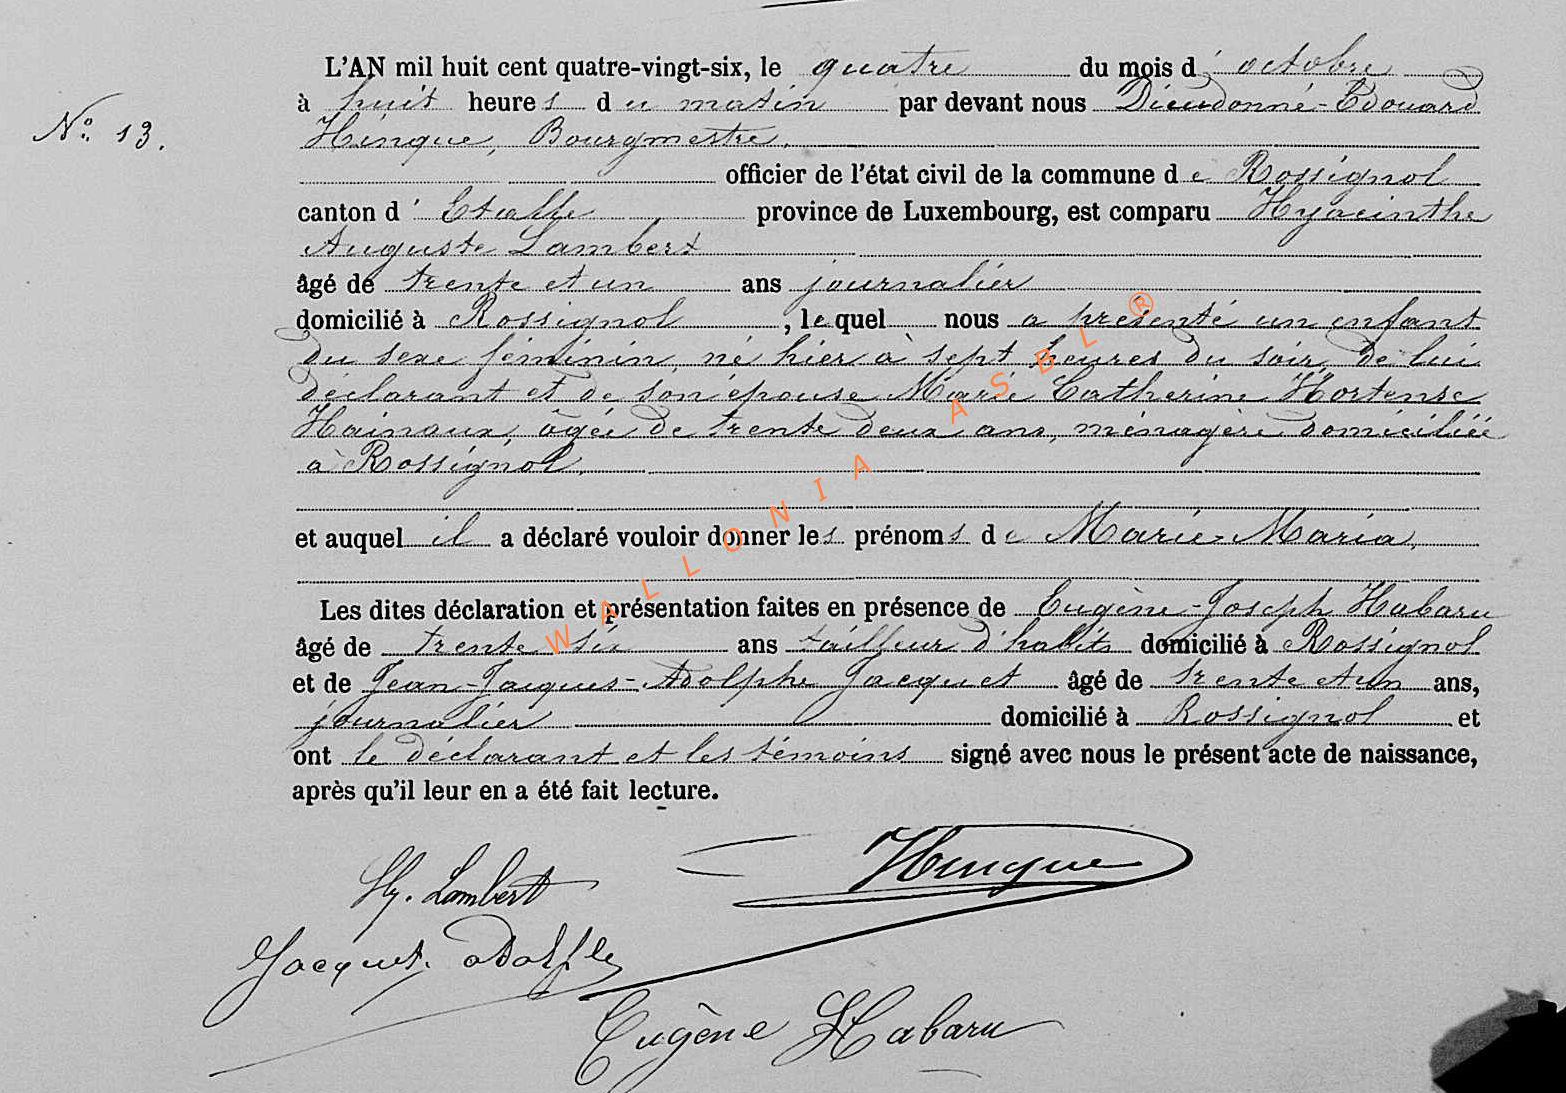 L'AN mil huit cent quatre-vingt-six, le quatre du mois d'octobre
N° 13.
à huit heures du matin par devant nous Dieudonné-Edouard
Hinque, Bourgmestre.
officier de l'état civil de la commune de Rossignol
canton d'Etalle, province de Luxembourg, est comparu Hyacinthe
Auguste Lambert
âgé de trente et un ans journalier
domicilié à Rossignol, lequel nous a présenté un enfant
du sexe féminin, né hier à sept heures du soir, de lui
déclarant et de son épouse Marie Catherine Hortense
Hainaux, âgée de trente deux ans, ménagère domiciliée
à Rossignol.
et auquel il a déclaré vouloir donner les prénoms de Marie-Maria,
Les dites déclaration et présentation faites en présence de Eugène-Joseph Habaru
âgé de trente six ans tailleur d'habits domicilié à Rossignol
et de Jean-Jacques-Adolphe Jacquet âgé de trente et un ans,
journalier domicilié à Rossignol et
ont le déclarant et les témoins signé avec nous le présent acte de naissance,
après qu'il leur en a été fait lecture.
Hinque
Hy. Lambert
Jacquet. Adolphe
Eugène Habaru
WALLONIA ASBL ®